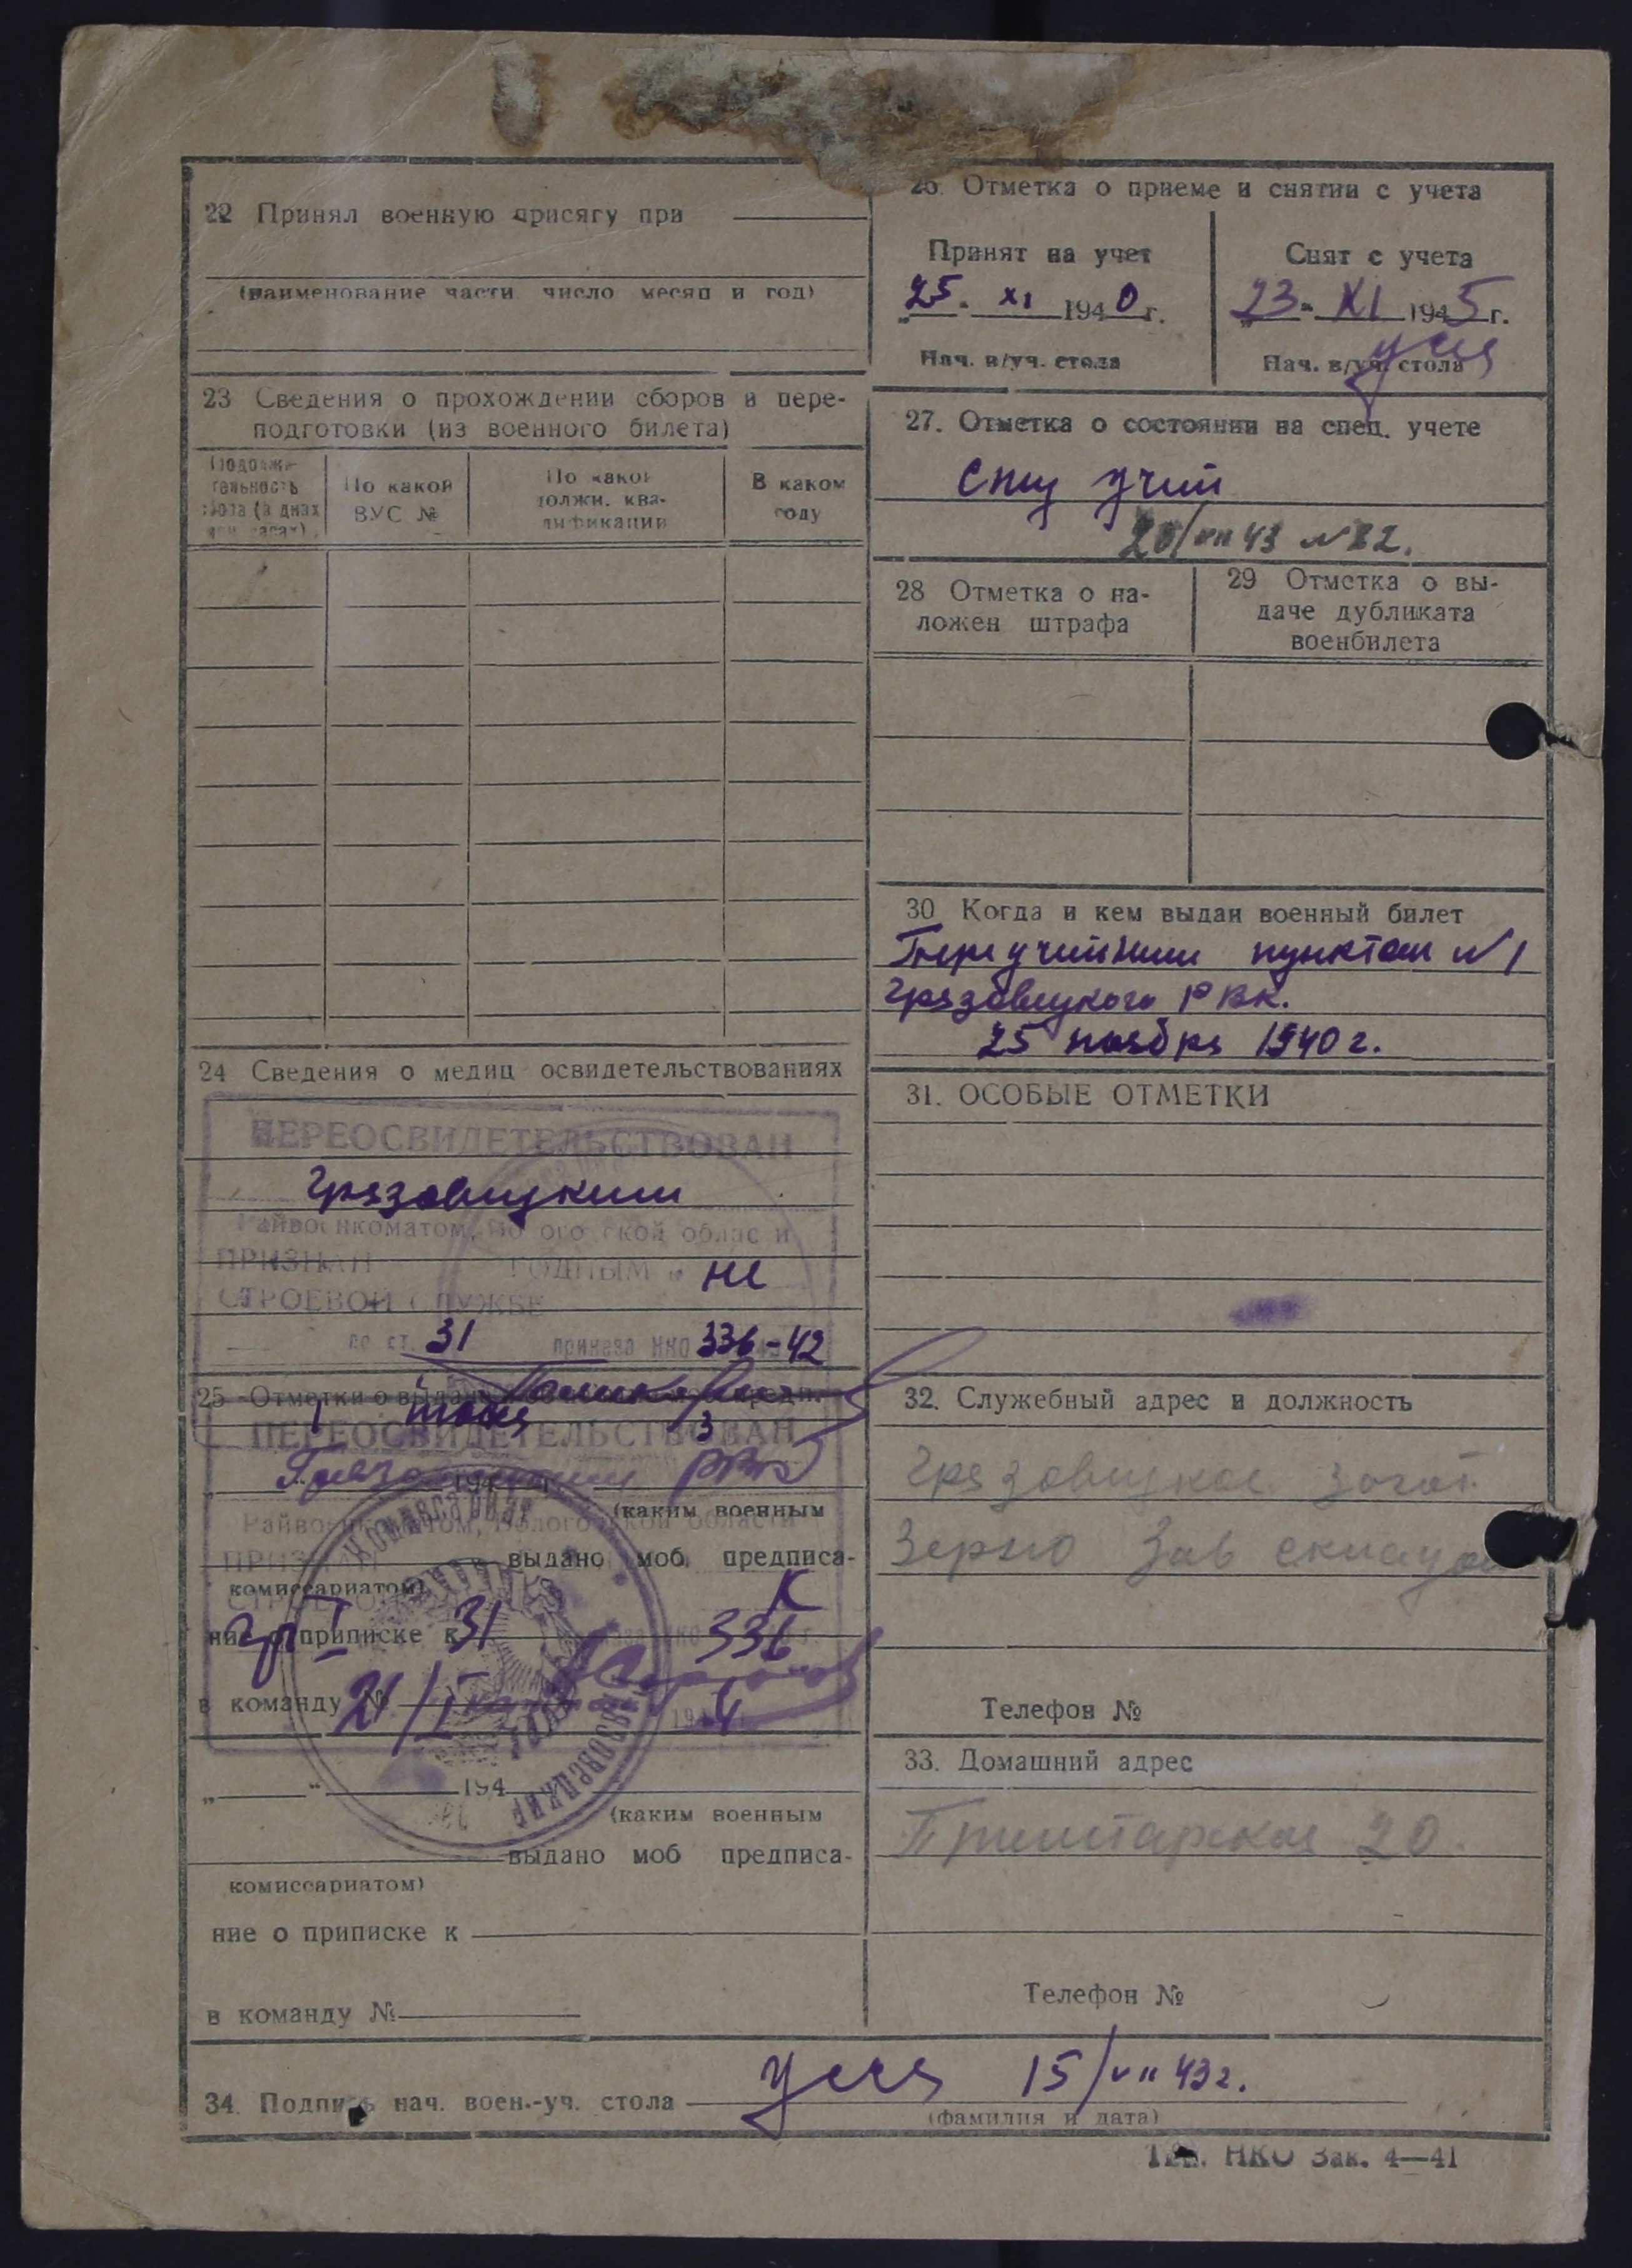 22 Принял военную присягу при
(наименование части число месяц и год)
23 Сведения о прохождении сборов и пере-
подготовки (из военного билета)
Продолжи-
тельность
сбора (в днях
или часах)
По какой
ВУС №
По какой
должн. ква-
лификации
В каком
году
24 Сведения о медиц освидетельствованиях
ПЕРЕОСВИДЕТЕЛЬСТВОВАН
Грязовецким
Райвоенкоматом, Вологодской области
ПРИЗНАН ГОДНЫМ к не
СТРОЕВОЙ СЛУЖБЕ
по ст. 31 приказа НКО 336-42
25 Отметки о
ПЕРЕОСВИДЕТЕЛЬСТВОВАН
Грязовецким РВК
194
(каким военным
Райвоенкоматом, Вологодской области
ПРИЗНАН
выдано моб. предписа-
комиссариатом)
К
ние о приписке к 31 336
в команду №
21/I 4
„ “ 194
(каким военным
выдано моб предписа-
комиссариатом)
ние о приписке к
в команду №
26. Отметка о приеме и снятии с учета
Принят на учет
„25“ XI 1940 г.
Нач. в/уч. стола
Снят с учета
„23“ XI 1945 г.
Нач. в/уч. стола
27. Отметка о состоянии на спец. учете
Спец учет
20/VII 43 №82.
28 Отметка о на-
ложен штрафа
29 Отметка о вы-
даче дубликата
военбилета
30 Когда и кем выдан военный билет
Переучетным пунктом №1
Грязовецкого РВК.
25 ноября 1940 г.
31. ОСОБЫЕ ОТМЕТКИ
32. Служебный адрес и должность
Грязовецкое Загот
Зерно Зав складом
Телефон №
33. Домашний адрес
20.
Телефон №
34. Подпись нач. воен.-уч. стола 15/VII 43 г.
(фамилия и дата)
Тип. НКО Зак. 4—41